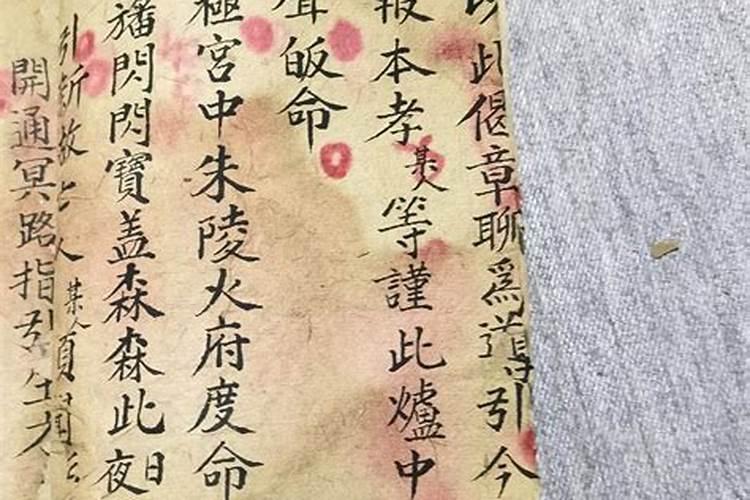 此偈章聊為導引今
報本孝某人等謹此爐中
皈命
極宮中朱陵火府度命
旛閃閃寶盖森森此夜日
引新故亡人某人
開通冥路指引